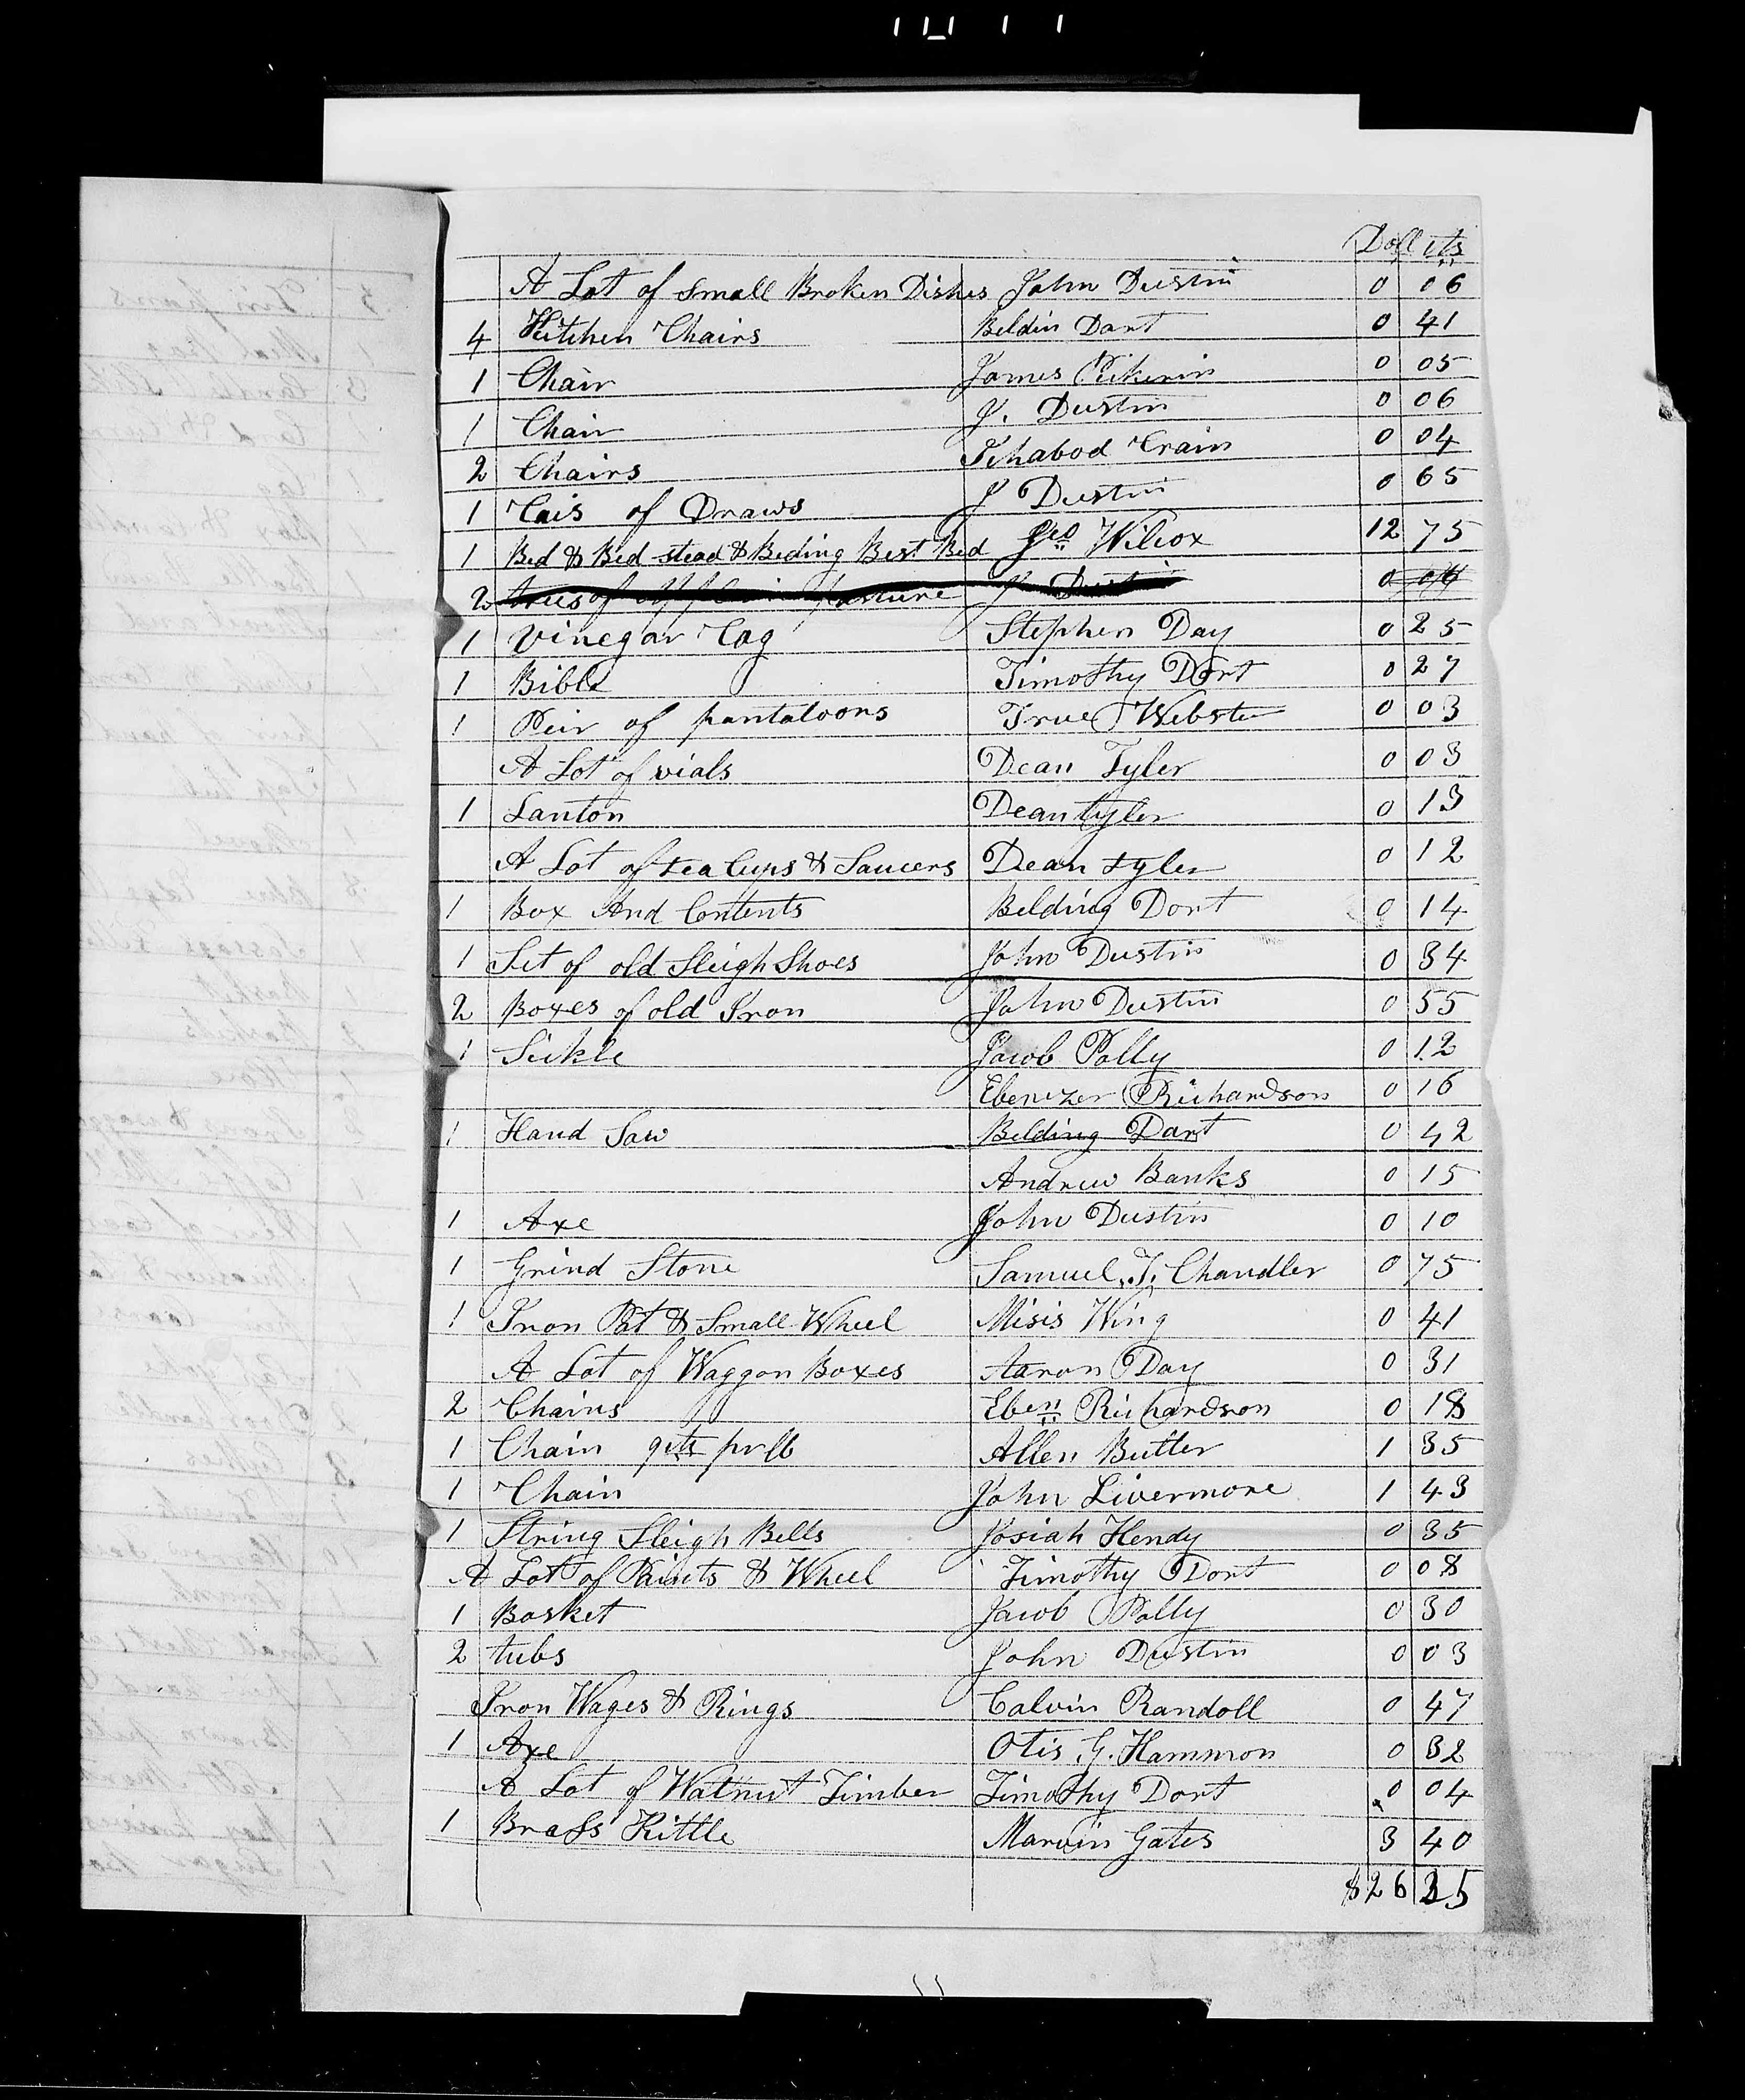 Doll cts
A Lot of Small Broken Dishes John Dustin 0 06
4 Kitchen Chairs Beldin Dart 0 41
1 Chair James Pikerin 0 05
1 Chair J. Dustin 0 06
2 Chairs Ichabod Crain 0 04
1 Cais of Draws J Dustin 0 65
1 Bed & Bed stead & Beding Best Bed Geo Wilcox 12 75
2 trees of pasture J Dustin 0 06
1 Vinegar Cag Stephen Day 0 25
1 Bible Timothy Dort 0 27
1 Peir of pantaloons True Webster 0 03
A Lot of vials Dean Tyler 0 03
1 Lanton Dean tyler 0 13
A Lot of tea Cups & Saucers Dean tyler 0 12
1 Box And Contents Belding Dort 0 14
1 Set of old Sleigh Shoes John Dustin 0 34
2 Boxes of old Iron John Dustin 0 55
1 Sickle Jacob Polly 0 12
Ebenezer Richardson 0 16
1 Hand Saw Belding Dart 0 42
Andrew Banks 0 15
1 Axe John Dustin 0 10
1 Grind Stone Samuel T. Chandler 0 75
1 Iron Pot & Small Wheel Misis Wing 0 41
A Lot of Waggon Boxes Aaron Day 0 31
2 Chains Eben Richardson 0 18
1 Chain 9 cts pr lb Allen Butler 1 35
1 Chain John Livermore 1 43
1 String Sleigh Bells Josiah Hendy 0 35
A Lot of Paints & Wheel Timothy Dort 0 08
1 Basket Jacob Polly 0 30
2 tubs John Dustin 0 03
Iron Wages & Rings Calvin Randoll 0 47
1 Axe Otis G. Hammon 0 32
A Lot of Walnut Timber Timothy Dort 0 04
1 Brass Kittle Marvin Gates 3 40
$26 35